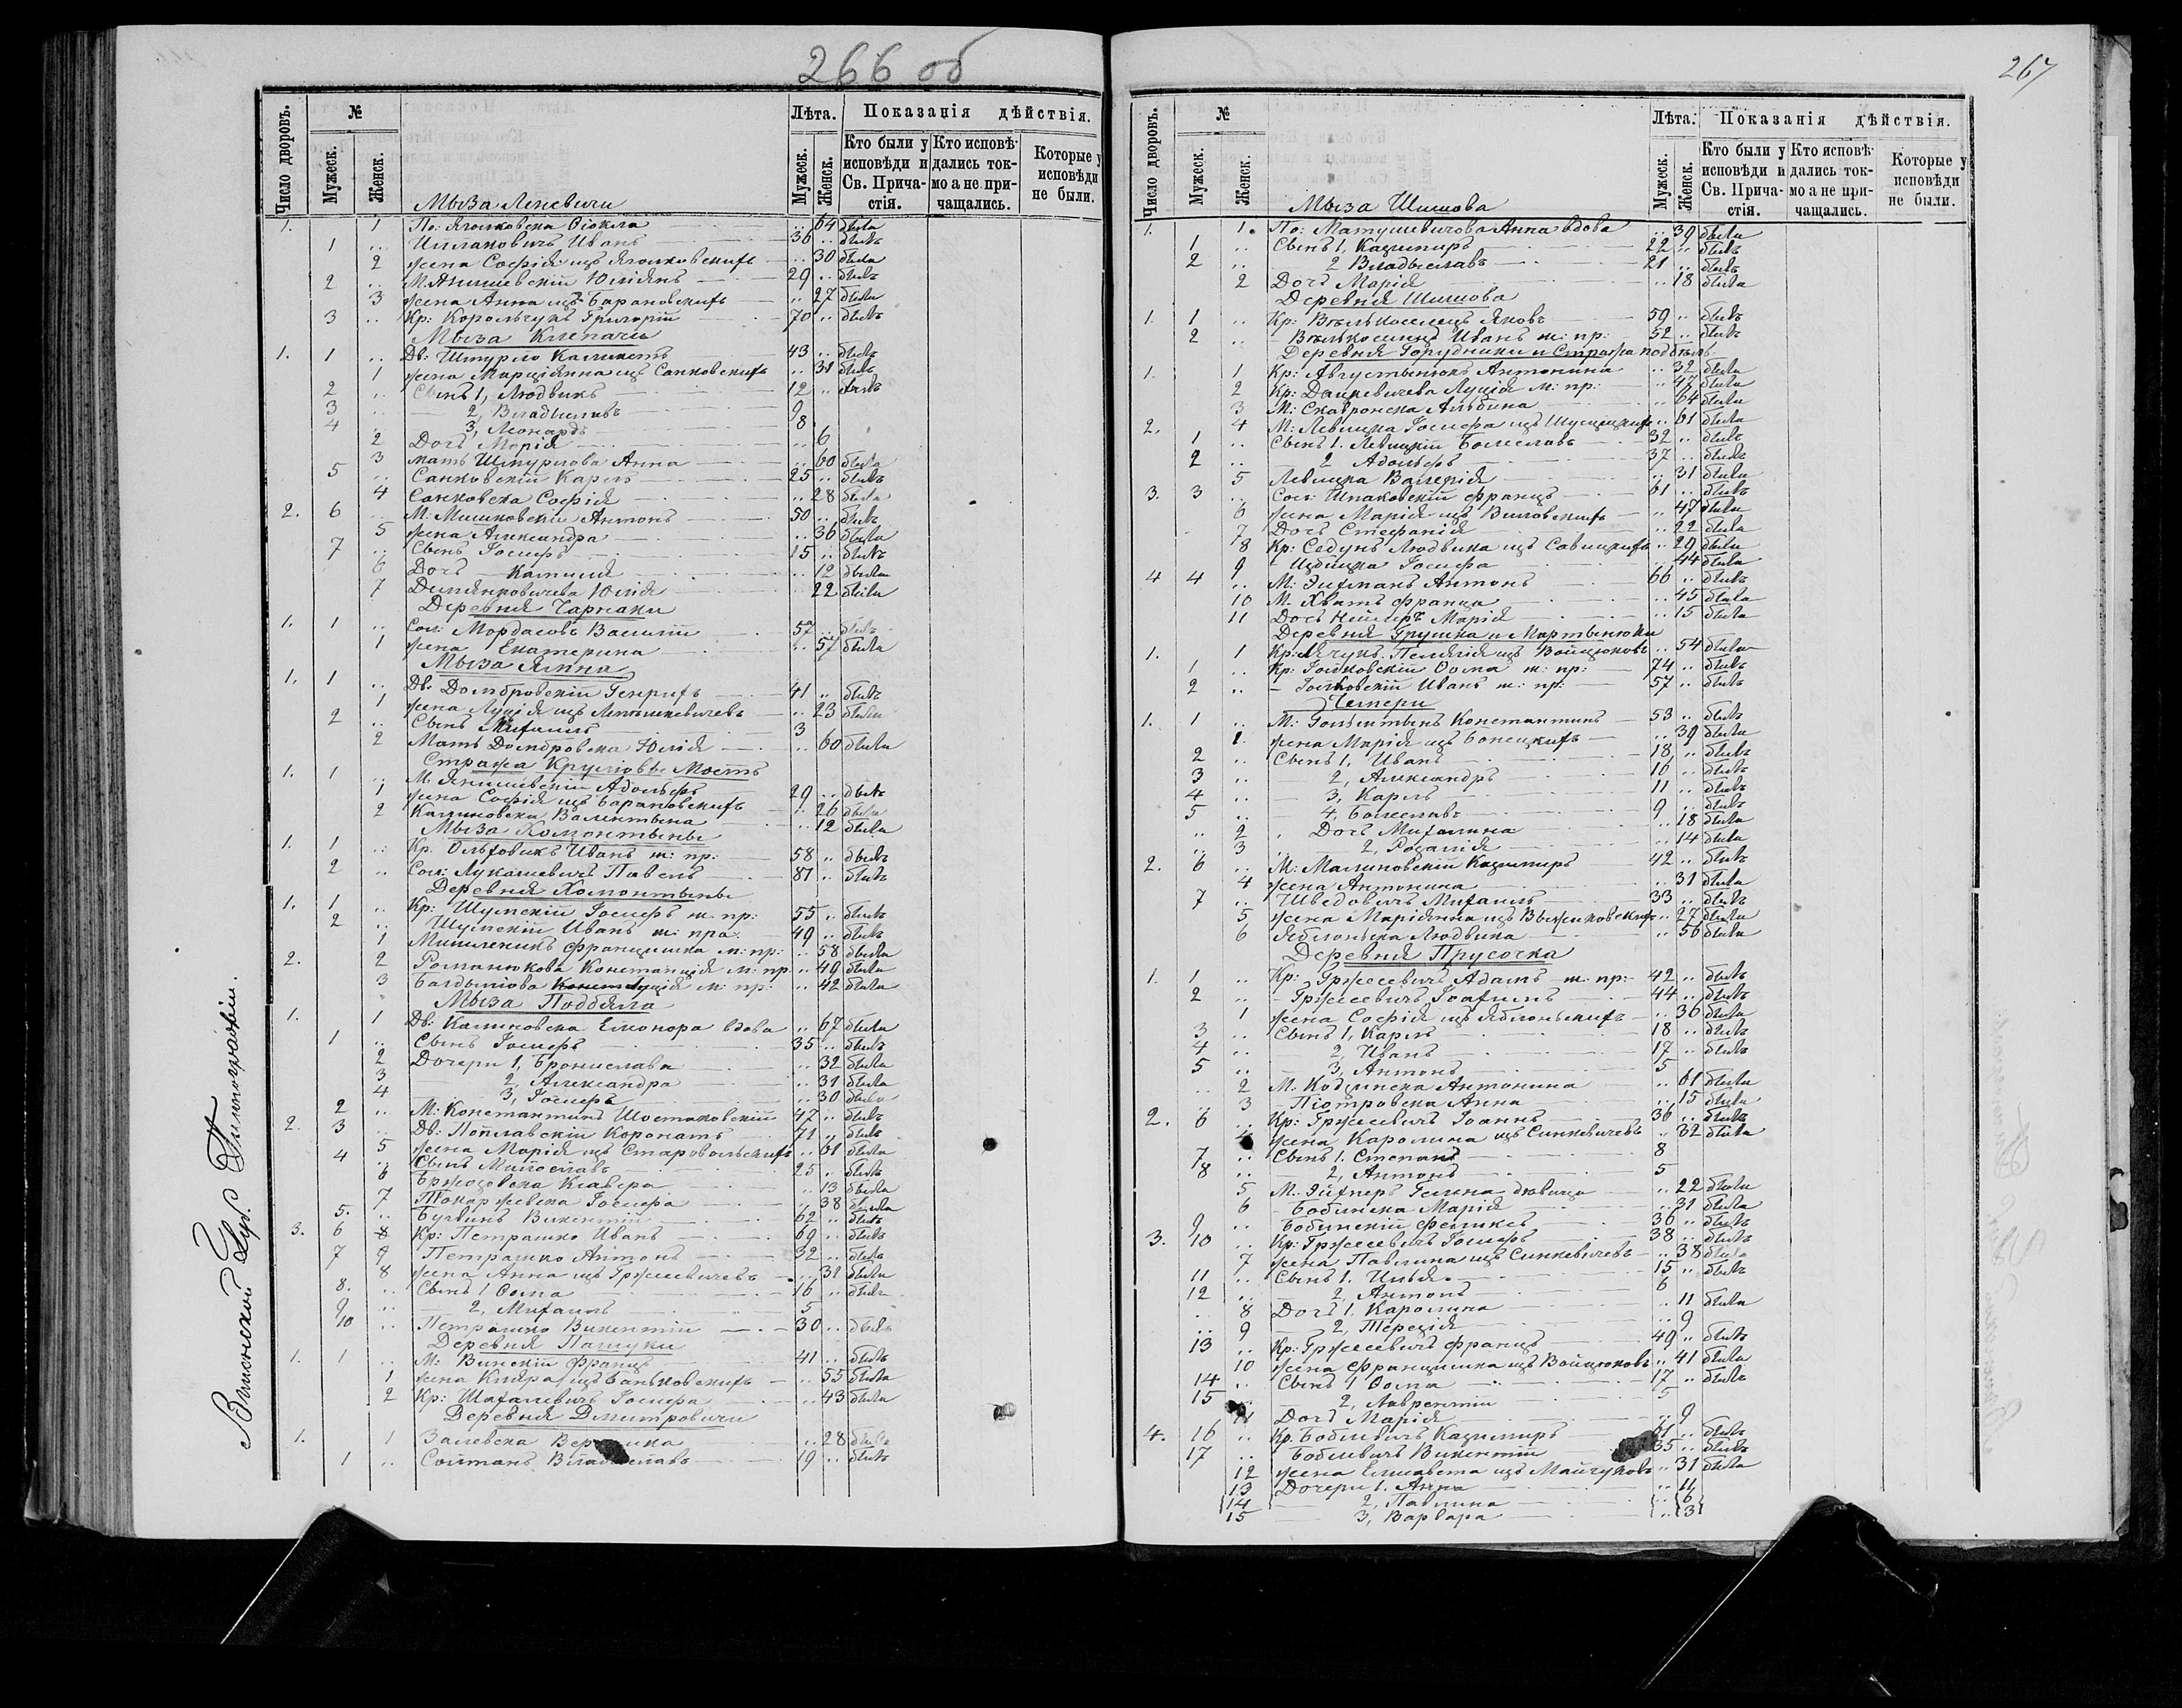 266 об
Число дворовъ. № Лѣта. Показанія дѣйствія.
Мужеск. Женск. Мужеск. Женск. Кто были у исповѣди и Св. Прича-стія. Кто исповѣ-дались ток-мо а не при-чащались. Которые у исповѣди не были.
Мыза Леневичи
1. 1 По: Яголковска Θіокла .. 64 была
1 .. Ивань 36 .. былъ
2 жена Софія изъ Яголковскихъ .. 30 была
2 .. М. Янишевскій Юліянъ 29 .. былъ
3 жена Анна изъ Барановскихъ .. 27 была
3 .. Кр: Корольчукъ Григорій 70 .. былъ
Мыза Клепачи
1. 1 .. Дв: Штурло Каликстъ 43 .. былъ
1 жена Марціянна изъ Санковскихъ .. 31 былъ
2 .. Сынъ 1, Людвикъ 12 .. былъ
3 .. 2, Владыславъ 9
4 3, Леонардъ 8
2 Дочь Марія .. 6
3 мать Штурлова Анна .. 60 была
5 .. Санковскій Карлъ 25 .. былъ
4 Санковска Софія .. 28 была
2. 6 .. М: Мишковскій Антонъ 50 .. былъ
5 жена Александра .. 36 была
7 .. Сынъ Іосифъ 15 .. былъ
6 Дочь Камиля .. 12 была
7 Демянковичева Юлія .. 22 была
Деревня Чарнаки
1. 1 .. Сол: Мордасовъ Василій 57 .. былъ
1 жена Екатерина .. 57 была
Мыза Ялина
1. 1 .. Дв: Домбровскій Генрихъ 41 .. былъ
1 жена Луція изъ .. 23 была
2 .. Сынъ Михаилъ 3
2 Мать Домбровска Юлія .. 60 была
Стража Круглов Мостъ
1. 1 .. М. Янишевскій Адольфъ 29 .. былъ
1 жена Софія изъ Барановскихъ .. 26 была
2 Калиновска Валентына .. 12 была
Мыза Хомонтыны
1. 1 .. Кр. Ольховикъ Иванъ ж: пр: 58 .. былъ
2 .. Сол: Лукашевичъ Павелъ 87 .. былъ
Деревня Хомонтыны
1. 1 .. Кр: Шумскій Іосифъ ж. пр: 55 .. былъ
2 .. Шумскій Иванъ ж: пра: 49 .. былъ
1 Францишка м: пр: .. 58 была
2. 2 Романюкова Констанція м: пр .. 49 была
3 Болдынова Луція м: пр: .. 42 была
Мыза Подбяла
1. 1 Дв: Калиновска Елеонора вдова .. 67 была
1 .. Сынъ Іосифъ 35 .. былъ
2 Дочери 1, Брониславa .. 32 была
3 2, Александра .. 31 была
4 3, Іосифъ .. 30 была
2 .. М: Константинъ Шостаковскій 47 .. былъ
2. 3 .. Дв: Поплавскій Коронатъ 71 .. былъ
5 жена Марія изъ Старовольскихъ .. 61 была
4 .. Сынъ Милославъ 25 .. былъ
6 Бржозовска Ксавера .. 13 была
7 Токаржевска Іосифа .. 38 была
5. .. Викентій 62 .. былъ
3. 6 8 Кр: Петрашко Иванъ 69 .. былъ
7 9 Петрашко Антонъ 32 .. былъ
8 жена Анна изъ Гржесевичевъ .. 31 была
8. .. Сынъ 1 Θома 16 .. былъ
9 .. 2, Михаилъ 5
10 .. Петрашко Викентій 30 .. былъ
Деревня Пашуки
1. 1 .. М: Винскій Францъ 41 .. былъ
1 жена Кляра изъ Баньковскихъ .. 55 была
2 Кр: Шахалевичъ Іосифа .. 43 была
Деревня Дмитровичи
1. 1 Залевска .. 28 была
1 .. Солтанъ Владыславъ 19 .. былъ
Виленской Губ.
267
Число дворовъ. № Лѣта. Показанія дѣйствія.
Мужеск. Женск. Мужеск. Женск. Кто были у исповѣди и Св. Прича-стія. Кто исповѣ-дались ток-мо а не при-чащались. Которые у исповѣди не были.
Мыза Шишова
1. 1. По: Матушевичова Анна вдова .. 39 была
1 .. Сынъ 1, Казимиръ 22 .. былъ
2 .. 2 Владыславъ 21 .. былъ
2 Дочь Марія .. 18 была
Деревня Шишова
1. 1 .. Кр: Вѣлькоселецъ Яковъ 59 .. былъ
2 .. Вѣлькоселецъ Иванъ ж: пр: 52 .. былъ
Деревня Горудники и Стража подбѣль
1. 1 Кр: Августынюкъ Антонина .. 32 была
2 Кр: Дацкевичева Луція м: пр: .. 47 была
3 М: Скавронска Альбина .. 64 была
2. 4 М: Левицка Іосифа изъ .. 61 была
1 .. Сынъ 1. Левицкій Болеславъ 32 .. былъ
2 .. 2 Адольфъ 37 .. былъ
5 Левицка Валерія .. 31 была
3. 3 .. Сол: Шпаковскій Францъ 61 .. былъ
6 жена Марія изъ Виловскихъ .. 47 была
7 Дочь Стефанія .. 22 была
8 Кр: Седунъ Людвика изъ Савицкихъ .. 29 была
9 Іосифа .. 44 была
4 4 .. М: Антонъ 66 .. былъ
10 М. Хвать Франца .. 45 была
11 Дочь Марія .. 15 была
Деревня Грушка и Мартынюки
1. 1 Кр: Пелягія изъ Войцюковъ .. 54 была
1 .. Кр: Голковскій Θома ж: пр: 74 .. былъ
2 .. Голковскій Иванъ ж: пр: 57 .. былъ
Чемери
1. 1 .. М: Гольштынъ Константинъ 53 .. былъ
1. жена Марія изъ Бонецкихъ .. 39 была
2 .. Сынъ 1. Иванъ 18 .. былъ
3 .. 2, Александръ 16 .. былъ
4 .. 3, Карлъ 11 .. былъ
5 .. 4, Болеславъ 9 .. былъ
.. 2 Дочь Михалина .. 18 была
.. 3 2, Розалія .. 14 была
2. 6 .. М: Малиновскій Казимиръ 42 .. былъ
4 жена Антонина .. 31 была
7 .. Шведовичъ Михаилъ 33 .. былъ
5 жена Маріянна изъ Выжиковскихъ .. 27 была
6 Яблоньска Людвика .. 56 была
Деревня Прусочка
1. 1 .. Кр: Гржесевичъ Адамъ ж. пр: 42 .. былъ
2 .. Гржесевичъ Іоахимъ 44 .. былъ
1 жена Софія изъ Яблоньскихъ .. 36 была
3 .. Сынъ 1, Карлъ 18 .. былъ
4 .. 2, Иванъ 17 .. былъ
5 .. 3, Антонъ 5
.. 2 М. Кодзинска Антонина .. 61 была
3 Піотровска Анна .. 15 была
2. 6 .. Кр: Гржесевичъ Іоаннъ 36 .. былъ
жена Каролина изъ Синкевичевъ .. 32 была
7 .. Сынъ 1. Степанъ 8
8 .. 2, Антонъ 5
5 М. Гелина дѣвица .. 22 была
6 Бобинска Марія .. 31 была
9 .. Бобинскій Феликсъ 36 .. былъ
3. 10 .. Кр: Гржесевичъ Іосифъ 38 .. былъ
7 жена Павлина изъ Синкевичевъ .. 38 была
11 .. Сынъ 1. Илья 15 .. былъ
12 .. 2, Антонъ 6
8 Дочь 1. Каролина .. 11 была
.. 9 2, Терезія .. 9
13 .. Кр: Гржесевичъ Францъ 49 .. былъ
10 жена Францишка изъ Войцюковъ .. 41 была
14 .. Сынъ 1 Θома 17 .. былъ
15 2, Лаврентій 5
11 Дочь Марія .. 9
4. 16 .. Кр. Бобевичъ Казимиръ 71 .. былъ
17 .. Бобевичъ Викентій 35 .. былъ
12 жена Елисавета изъ Майчуковъ .. 31 была
13 Дочери 1. Анна .. 11
14 2, Павлина .. 6
15 3, Варвара .. 3